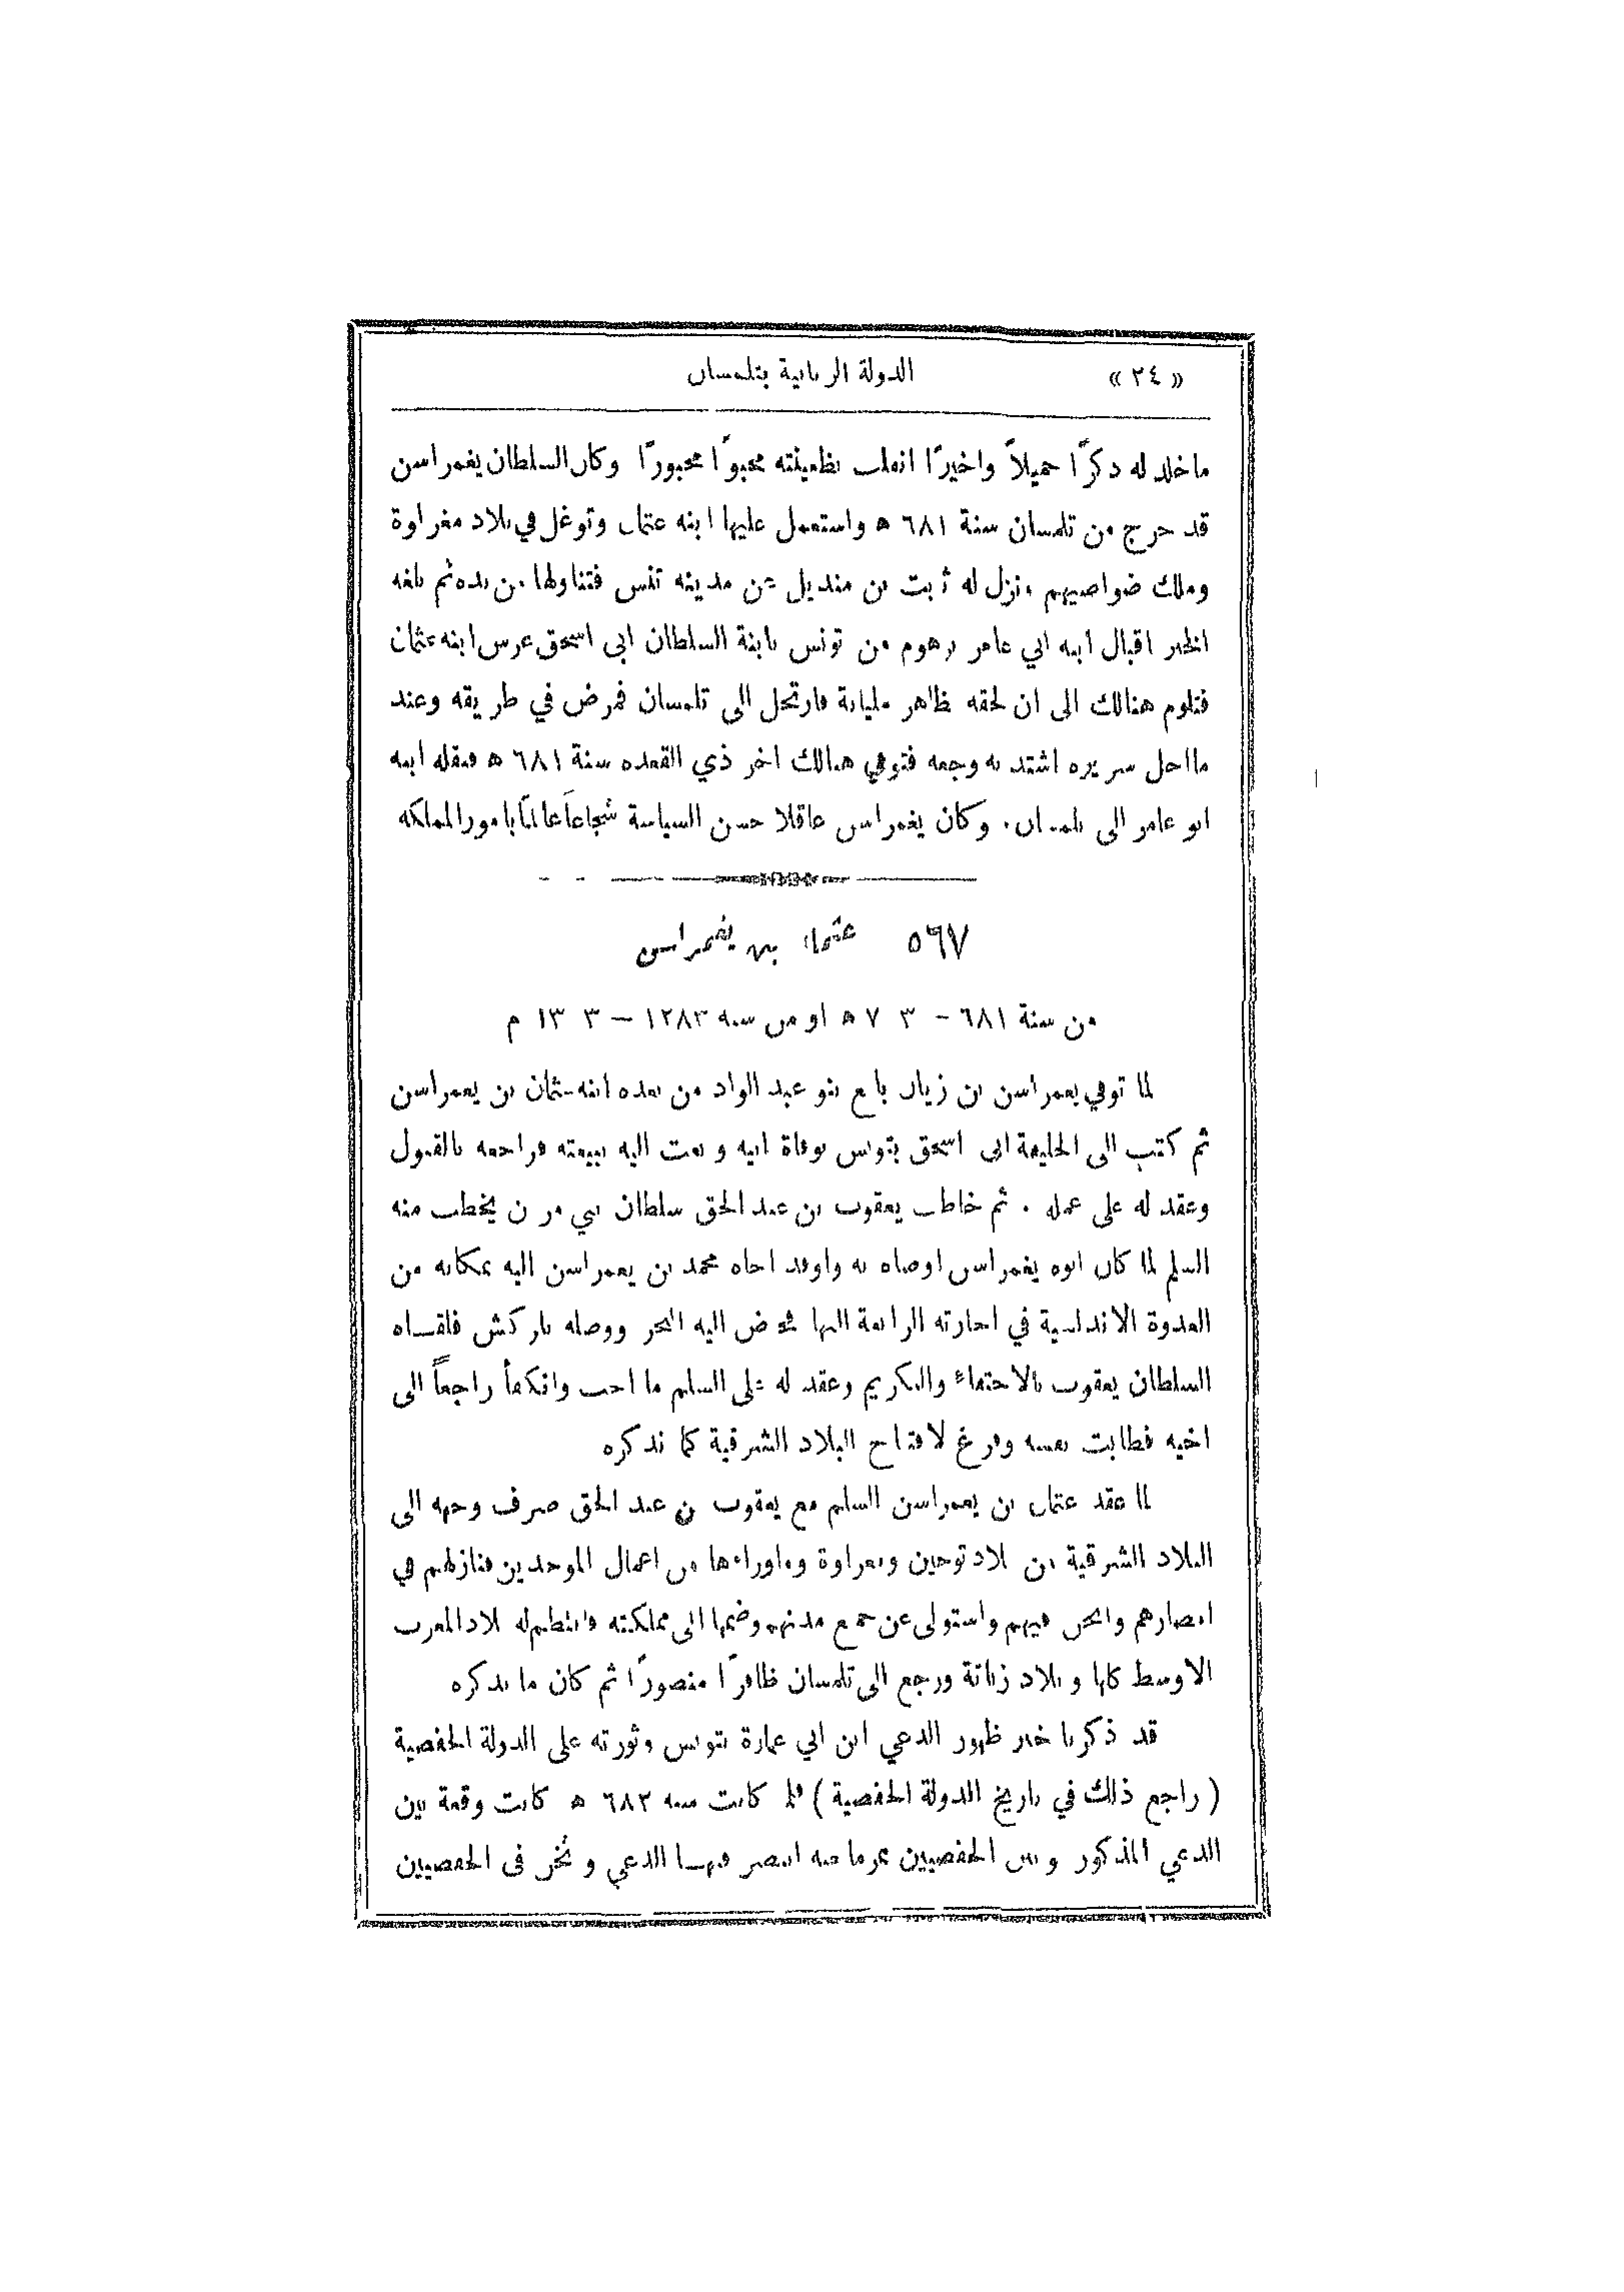 « ٣٤ » الدولة الزيانية بتلمسان
ما خلد له ذكرًا جميلاً واخيرًا انقلب بظعينته محبوًا محبورًا وكان السلطان يغمراسن
قد خرج من تلمسان سنة ٦٨١ ه واستعمل عليها ابنه عثمان وتوغل في بلاد مغراوة
وملك ضواحيهم ونزل له ثابت بن منديل عن مدينة تنس فتناولها من يده ثم بلغه
الخبر اقبال ابنه ابي عامر برهوم من تونس بابنة السلطان ابي اسحق عرس ابنه عثمان
فتلوم هنالك الى ان لحقه بظاهر مليانة فارتحل الى تلمسان فمرض في طريقه وعند
ما احل سريره اشتد به وجعه فتوفي هنالك اخر ذي القعده سنة ٦٨١ ه فنقله ابنه
ابو عامر الى تلمسان. وكان يغمراسن عاقلا حسن السياسة شجاعاً عالماً بامور المملكه
٥٦٧ عثمان بن يغمراسن
من سنة ٦٨١ – ٧٠٣ ه او من سنة ١٢٨٣ – ١٣٠٣ م
لما توفي يغمراسن بن زيان بايع بنو عبد الواد من بعده ابنه عثمان بن يغمراسن
ثم كتب الى الخليفة ابي اسحق بتونس بوفاة ابيه وبعث اليه ببيعته فراجعه بالقبول
وعقد له على عمله . ثم خاطب يعقوب بن عبد الحق سلطان بني مرين يخطب منه
السلم لما كان ابوه يغمراسن اوصاه به واوفد اخاه محمد بن يغمراسن اليه بمكانه من
العدوة الاندلسية في اجازته الرابعة اليها فخاض اليه البحر ووصله باركش فلقاه
السلطان يعقوب بالاحتفاء والتكريم وعقد له على السلم ما احب وانكفأ راجعاً الى
اخيه فطابت نفسه وفرغ لافتتاح البلاد الشرقية كما نذكره
لما عقد عثمان بن يغمراسن السلم مع يعقوب بن عبد الحق صرف وجهه الى
البلاد الشرقية من بلاد توجين ومغراوة وما وراءها من اعمال الموحدين فنازلهم في
امصارهم واثخن فيهم واستولى عن جميع مدنهم وضمها الى مملكته فانتظم له بلاد المغرب
الاوسط كلها وبلاد زناتة ورجع الى تلمسان ظافرًا منصورًا ثم كان ما نذكره
قد ذكرنا خبر ظهور الدعي ابن ابي عمارة بتونس وثورته على الدولة الحفصية
( راجع ذلك في تاريخ الدولة الحفصية ) فلما كانت سنة ٦٨٢ ه كانت وقعة بين
الدعي المذكور وبين الحفصيين بمرماجنه انتصر فيها الدعي واثخن في الحفصيين